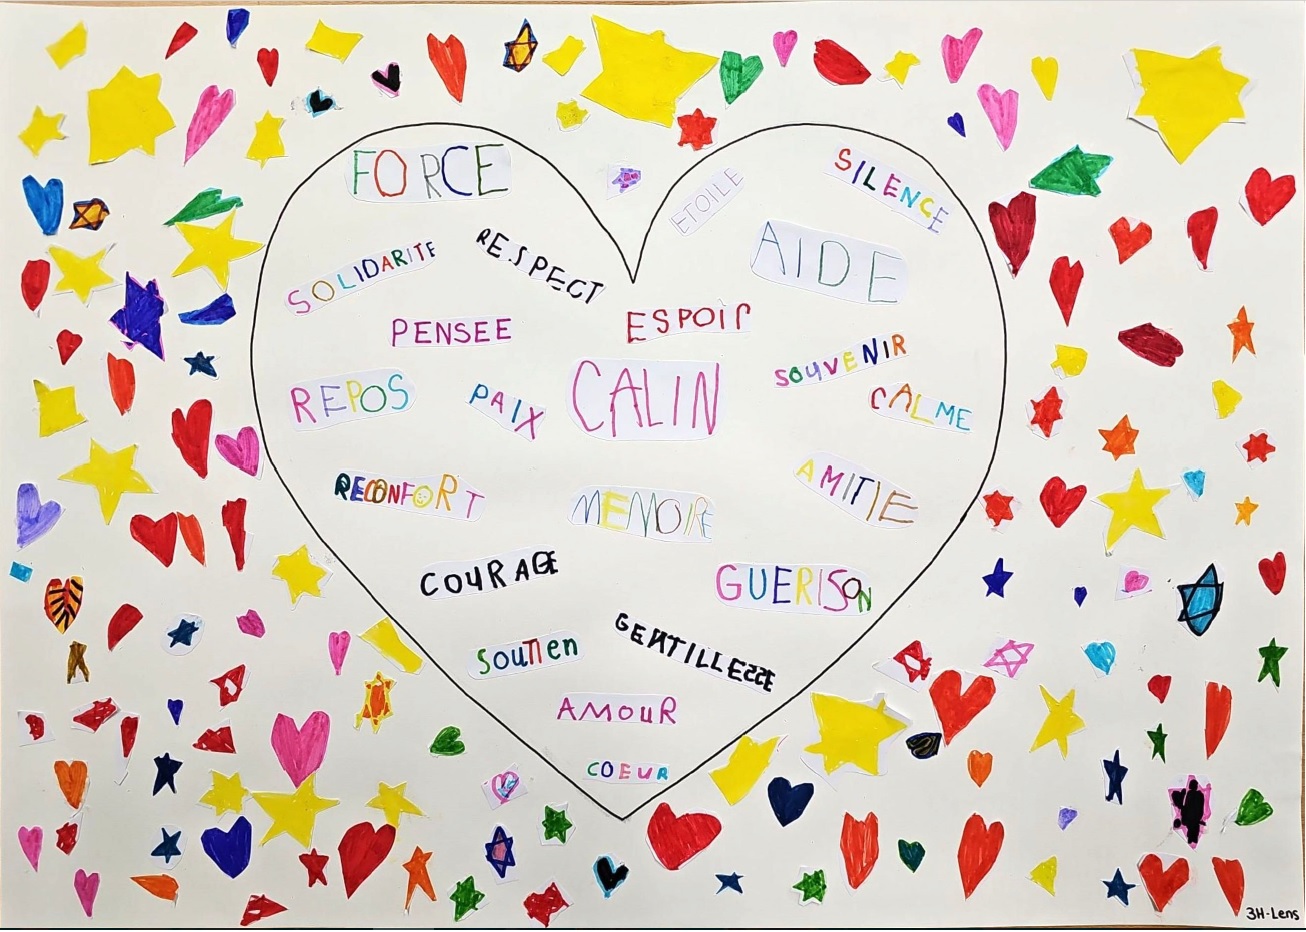 FORCE
SILENCE
ETOILE
AIDE
SOLIDARITE
RESPECT
PENSEE
ESPOIR
SOUVENIR
REPOS
PAIX
CALIN
CALME
RECONFORT
MEMOIRE
AMITIE
COURAGE
GUERISON
SOUTIEN
GENTILLESSE
AMOUR
COEUR
3H-Lens